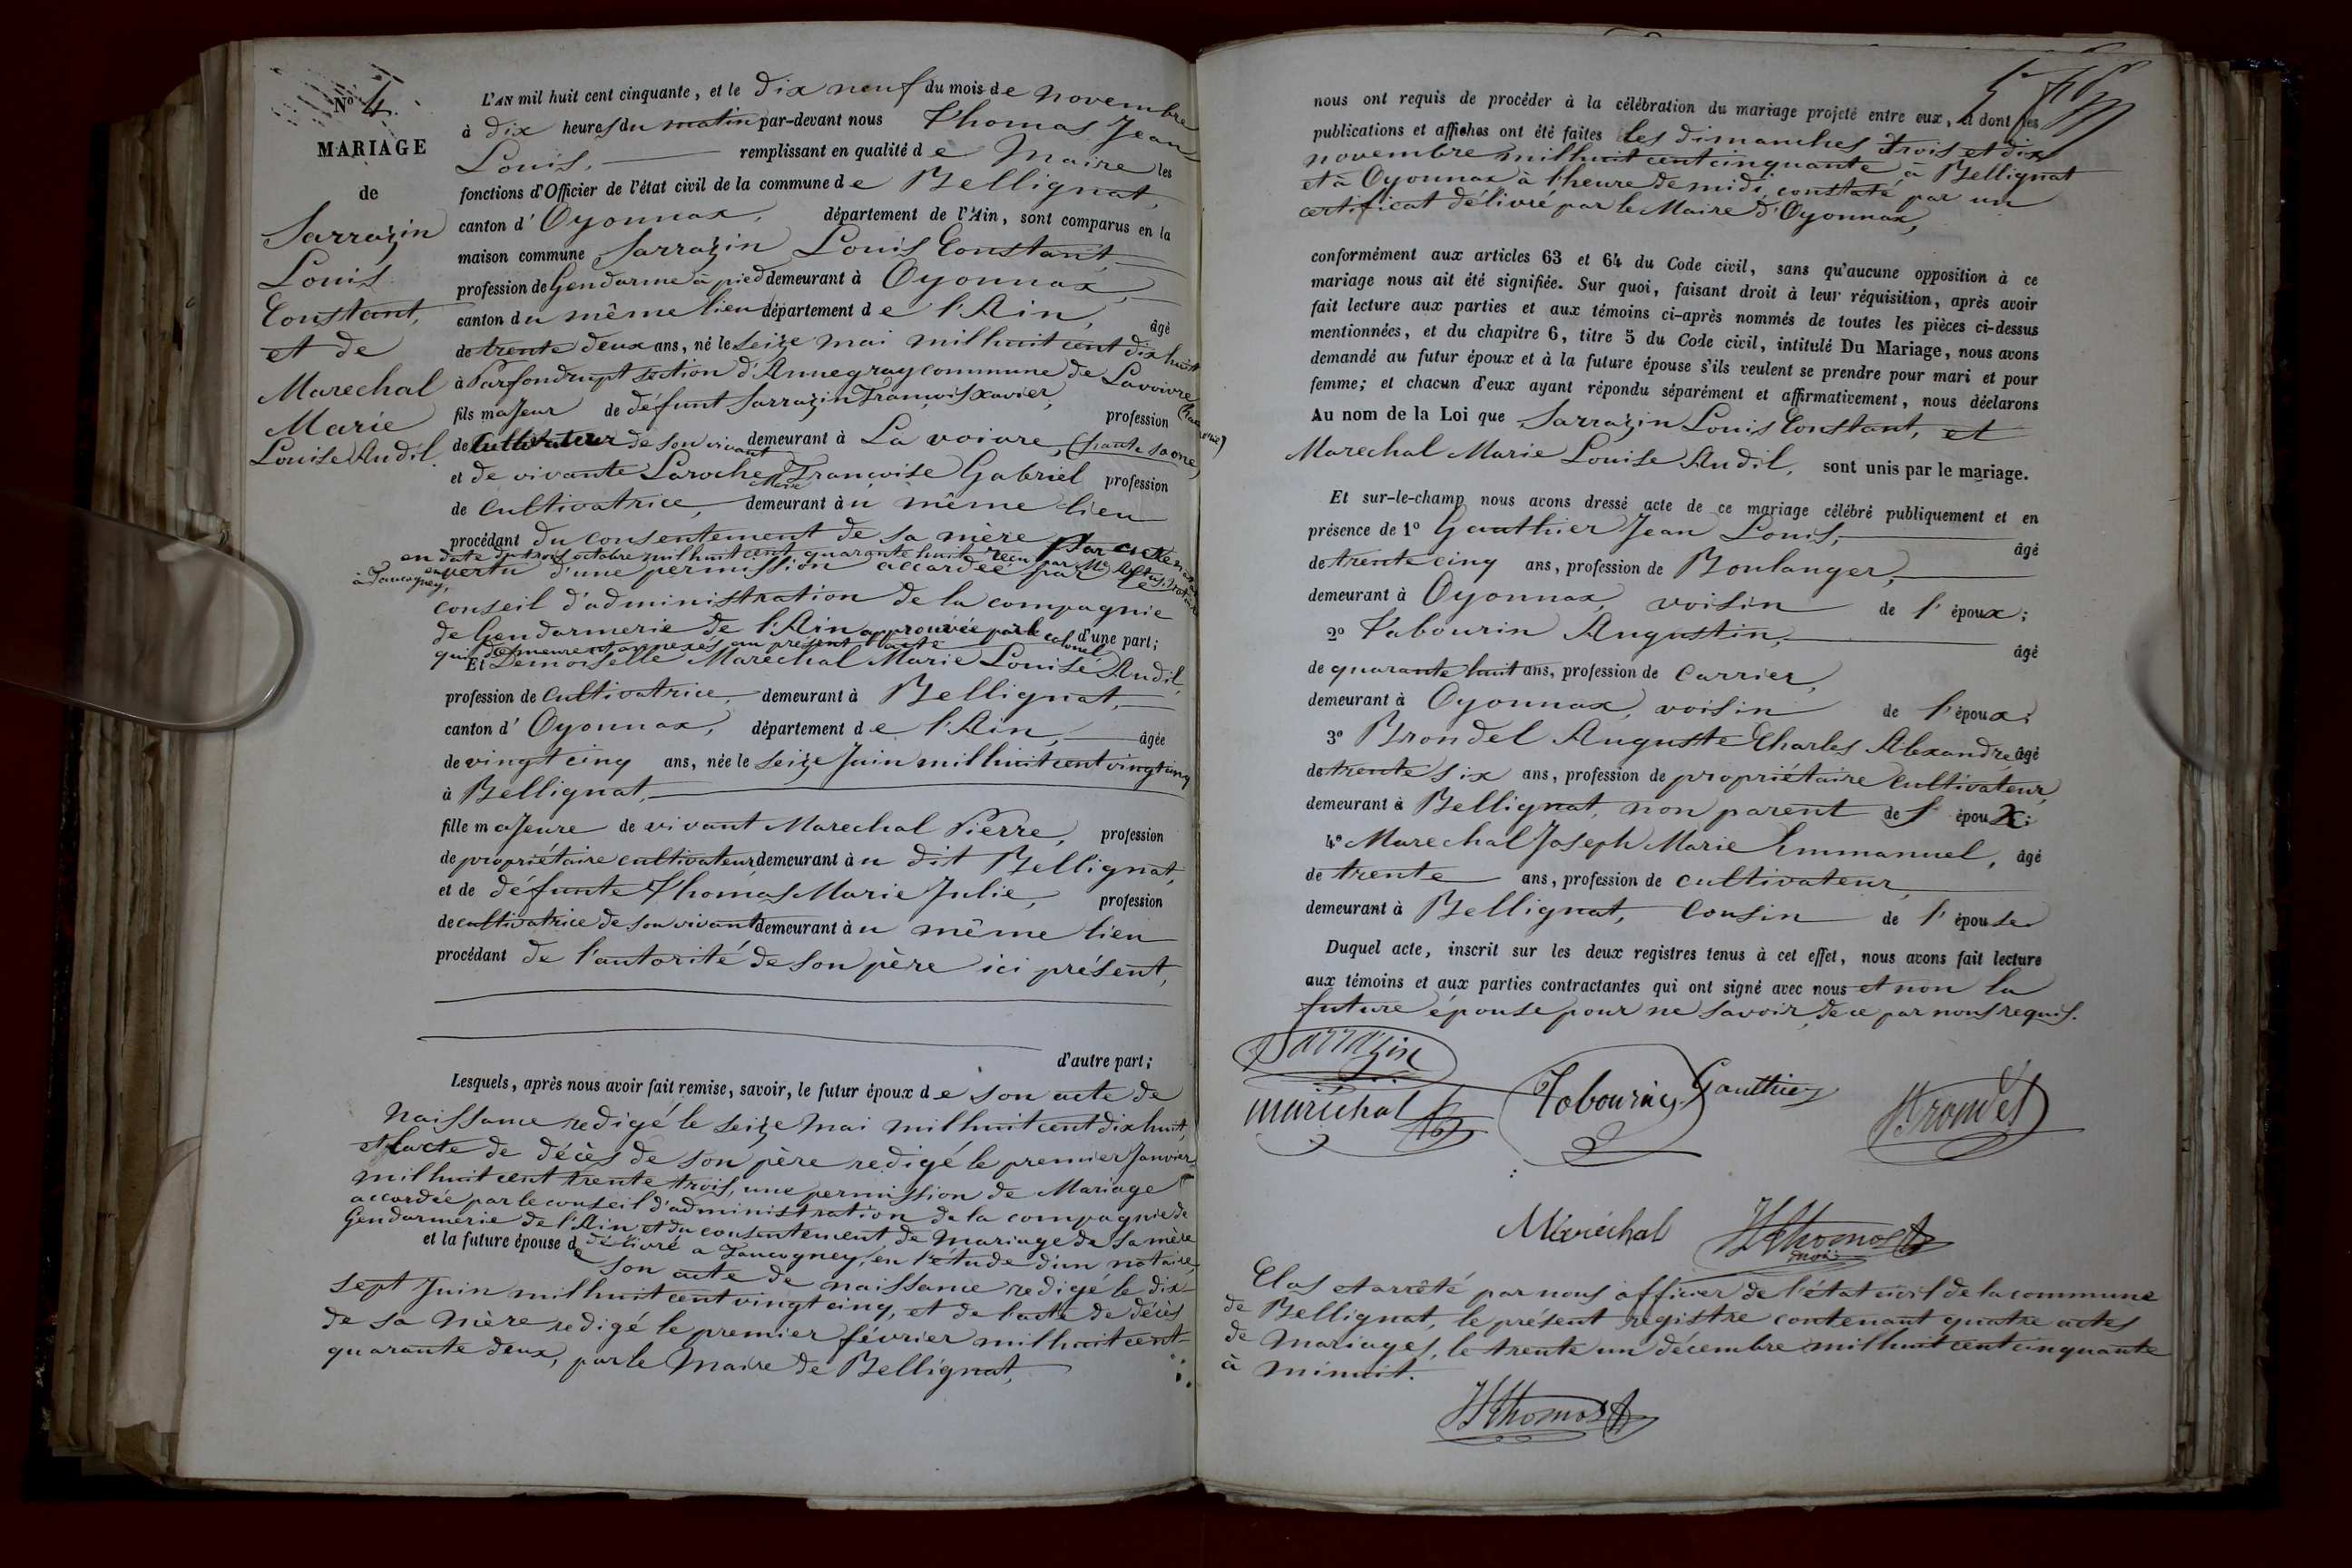 Nº 4.
MARIAGE
de
Sarrazin
Louis
Constant,
et de
Marechal
Marie
Louise Audil.
L'AN mil huit cent cinquante, et le dix neuf du mois de novembre
à dix heures du matin par-devant nous Thomas Jean
Louis, remplissant en qualité de Maire les
fonctions d'Officier de l'état civil de la commune de Bellignat,
canton d'Oyonnax, département de l'Ain, sont comparus en la
maison commune Sarrazin Louis Constant,
profession de Gendarme à pied demeurant à Oyonnax,
canton du même lieu département de l'Ain, âgé
de trente deux ans, né le seize mai mil huit cent dix huit
à Parfondrupt section d'Annegray commune de Lavoivre
fils majeur de défunt Sarrazin François xavier, profession
de Cultivateur de son vivant demeurant à La voivre, (haute saone)
et de vivante Laroche Françoise Gabriel profession
de cultivatrice, demeurant àu même lieu
procédant du consentement de sa mère par acte
en date du trois octobre mil huit cent quarante huit reçu par Me
à Faucogney,
en vertu d'une permission accordée par le
conseil d'administration de la compagnie
de Gendarmerie de l'Ain approuvée par le colonel d'une part;
qui demeurent annexés au présent acte
Et Demoiselle Marechal Marie Louise Audil,
profession de cultivatrice, demeurant à Bellignat,
canton d'Oyonnax, département de l'Ain, âgée
de vingt cinq ans, née le seize Juin mil huit cent vingt cinq
à Bellignat,
fille majeure de vivant Marechal Pierre, profession
de propriétaire cultivateur demeurant àu dit Bellignat,
et de défunte Thomas Marie Julie, profession
de cultivatrice de son vivant demeurant àu même lieu
procédant de l'autorité de son père ici présent,
d'autre part;
Lesquels, après nous avoir fait remise, savoir, le futur époux de son acte de
Naissance redigé le seize mai mil huit cent dix huit,
et l'acte de décès de son père redigé le premier Janvier
mil huit cent trente trois, une permission de Mariage
accordée par le conseil d'administration de la compagnie de
Gendarmerie de l'Ain et du consentement de mariage de sa mère
délivré a Faucogney, en l'étude d'un notaire,
et la future épouse de son acte de naissance redigé le dix
sept Juin mil huit cent vingt cinq, et de l'acte de décès
de sa Mère redigé le premier février mil huit cent
quarante deux, par le Maire de Bellignat,
nous ont requis de procéder à la célébration du mariage projeté entre eux, et dont les
publications et affiches ont été faites les dimanches trois et dix
novembre mil huit cent cinquante à Bellignat
et à Oyonnax à l'heure de midi, constaté par un
certificat délivré par le Maire d'Oyonnax,
conformément aux articles 63 et 64 du Code civil, sans qu'aucune opposition à ce
mariage nous ait été signifiée. Sur quoi, faisant droit à leur réquisition, après avoir
fait lecture aux parties et aux témoins ci-après nommés de toutes les pièces ci-dessus
mentionnées, et du chapitre 6, titre 5 du Code civil, intitulé Du Mariage, nous avons
demandé au futur époux et à la future épouse s'ils veulent se prendre pour mari et pour
femme; et chacun d'eux ayant répondu séparément et affirmativement, nous déclarons
Au nom de la Loi que Sarrazin Louis Constant, et
Marechal Marie Louise Audil, sont unis par le mariage.
Et sur-le-champ nous avons dressé acte de ce mariage célébré publiquement et en
présence de 1º Gauthier Jean Louis, âgé
de trente cinq ans, profession de Boulanger,
demeurant à Oyonnax, voisin de l'époux;
2º Tabourin Augustin, âgé
de quarante huit ans, profession de Carrier,
demeurant à Oyonnax, voisin de l'époux;
3º Brondel Auguste Charles Alexandre âgé
de trente six ans, profession de propriétaire cultivateur,
demeurant à Bellignat, non parent de l'époux;
4º Marechal Joseph Marie Emmanuel, âgé
de trente ans, profession de cultivateur,
demeurant à Bellignat, cousin de l'épouse
Duquel acte, inscrit sur les deux registres tenus à cet effet, nous avons fait lecture
aux témoins et aux parties contractantes qui ont signé avec nous et non la
future épouse pour ne savoir, de ce par nous requis.
Sarrazin
marechal
Tabourin
Gauthier
Brondel
Maréchal
JLThomas
moi
Clos et arrêté par nous officier de l'état civil de la commune
de Bellignat, le présent registre contenant quatre actes
de Mariages, le trente un décembre mil huit cent cinquante
à minuit.
JLThomas